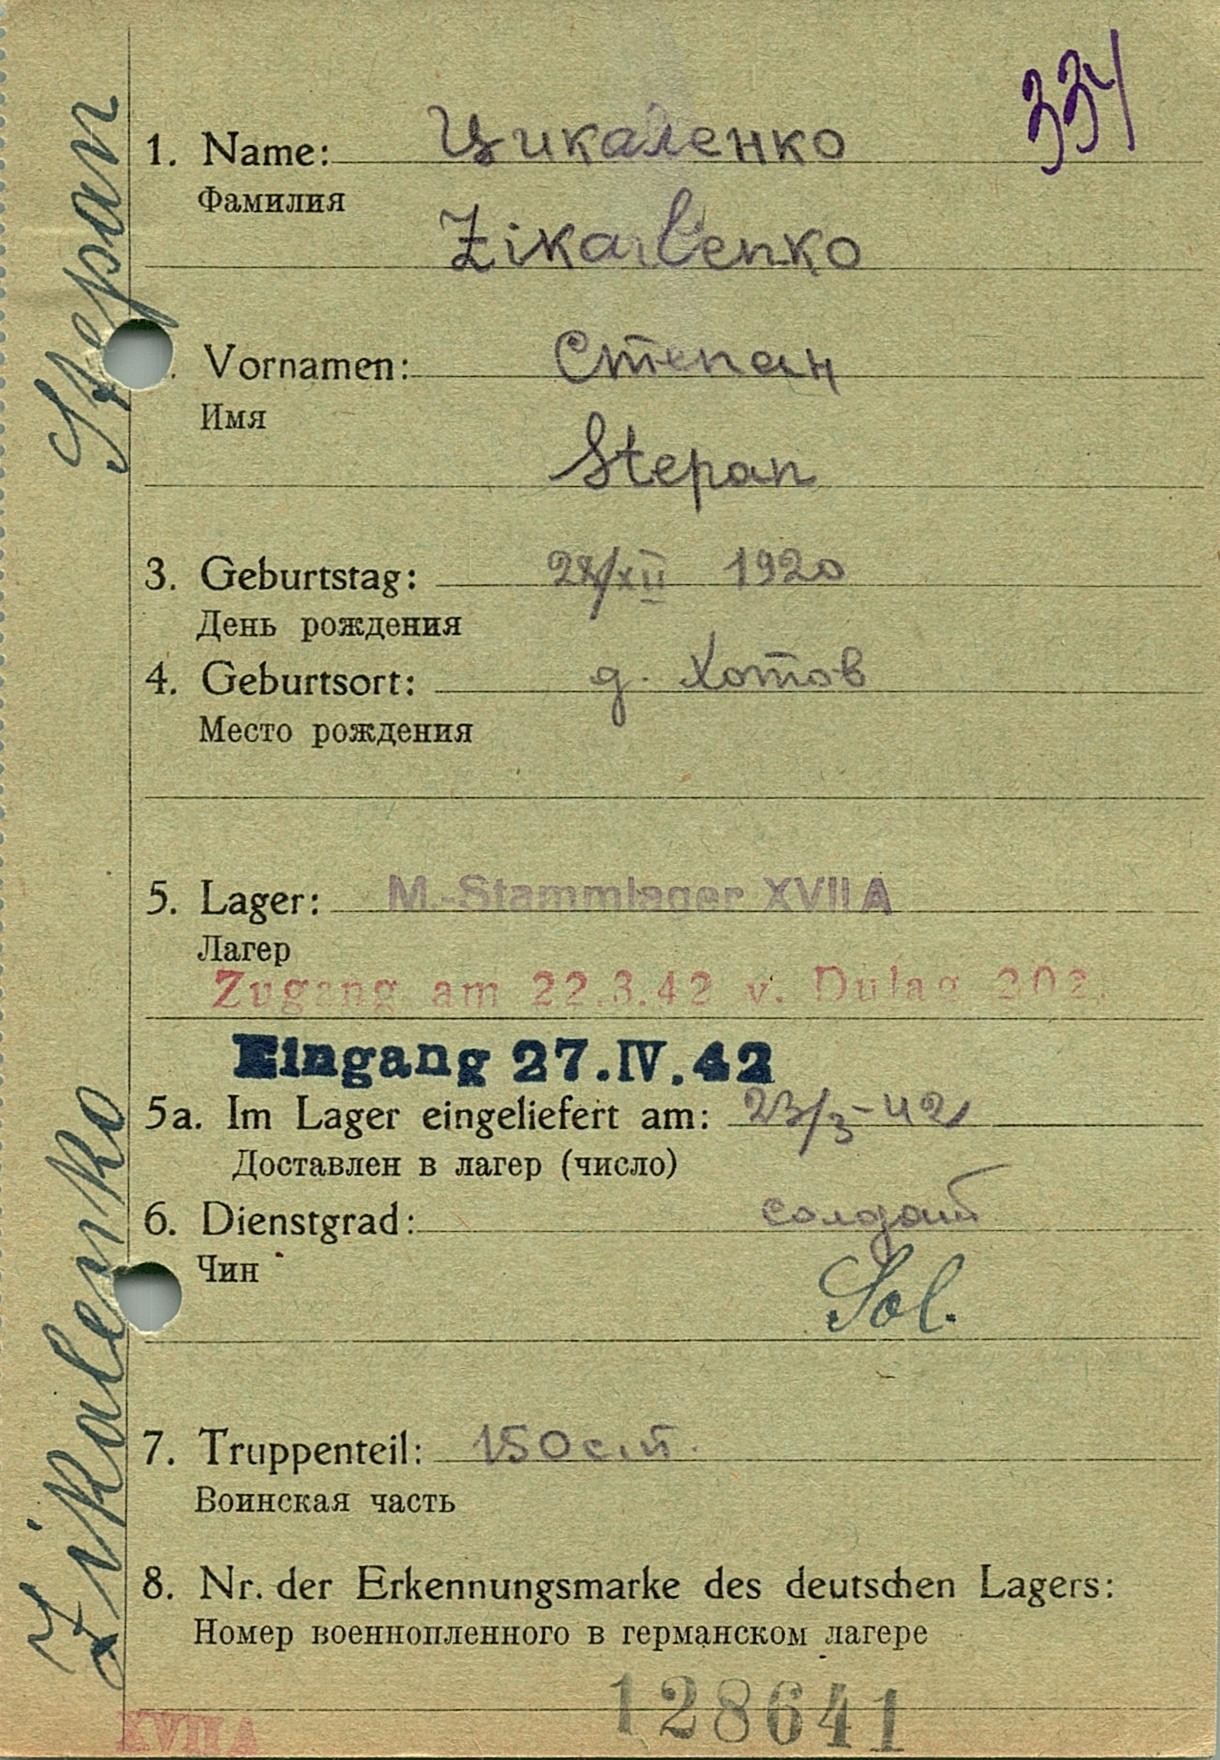 334
1. Name: Цикаленко
Фамилия
Zikalenko
Vornamen: Степан
Имя
Stepan
3. Geburtstag: 28/XII 1920
День рождения
4. Geburtsort: д. Хотов
Место рождения
5. Lager: M.-Stammlager XVII A
Лагер
Zugang am 22.3.42 v. Dulag 202.
Eingang 27.IV.42
5a. Im Lager eingeliefert am: 23/3-42
Доставлен в лагер (число)
6. Dienstgrad: солдат
Чин
Sol.
7. Truppenteil: 150 с.п.
Воинская часть
8. Nr. der Erkennungsmarke des deutschen Lagers:
Номер военнопленного в германском лагере
128641
XVII A
Zikalenko Stepan